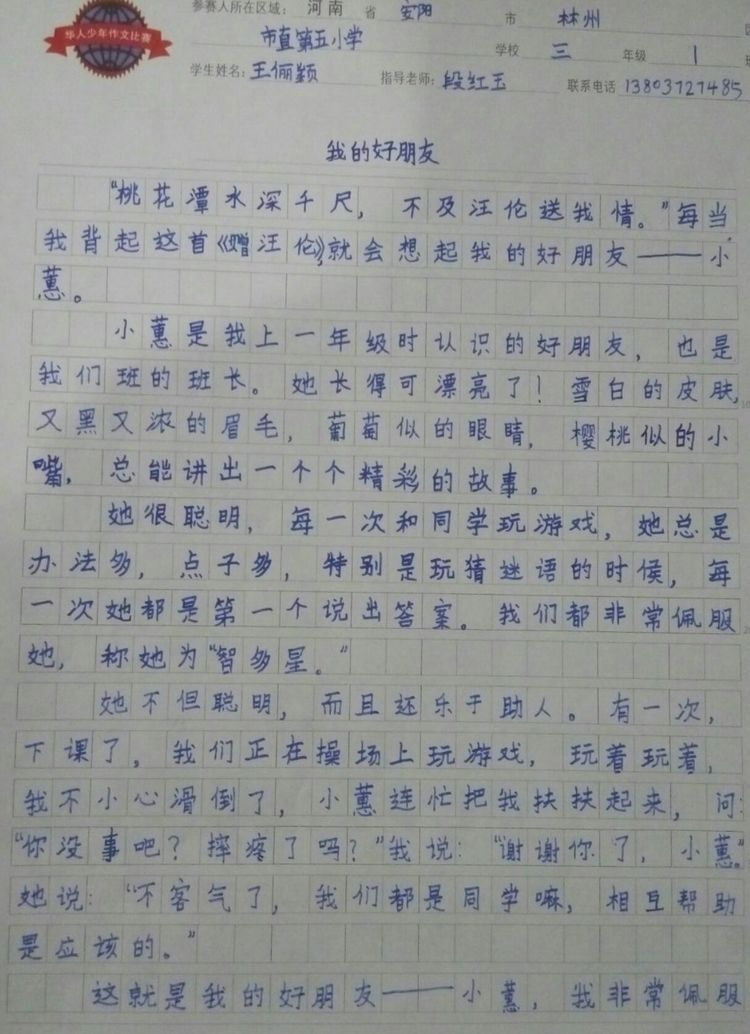 华人少年作文比赛
参赛人所在区域: 河南 省 安阳 市 林州
市直第五小学 学校 三 年级 1 班
学生姓名: 王俪颖 指导老师: 段红玉 联系电话 13803727485
我的好朋友
“桃花潭水深千尺，不及汪伦送我情。”每当
我背起这首《赠汪伦》，就会想起我的好朋友——小
蕙。
小蕙是我上一年级时认识的好朋友，也是
我们班的班长。她长得可漂亮了！雪白的皮肤，
又黑又浓的眉毛，葡萄似的眼睛，樱桃似的小
嘴，总能讲出一个个精彩的故事。
她很聪明，每一次和同学玩游戏，她总是
办法多，点子多，特别是玩猜迷语的时侯，每
一次她都是第一个说出答案。我们都非常佩服
她，称她为“智多星。”
她不但聪明，而且还乐于助人。有一次，
下课了，我们正在操场上玩游戏，玩着玩着，
我不小心滑倒了，小蕙连忙把我扶扶起来，问：
“你没事吧？摔疼了吗？”我说：“谢谢你了，小蕙。”
她说：“不客气了，我们都是同学嘛，相互帮助
是应该的。”
这就是我的好朋友——小蕙，我非常佩服